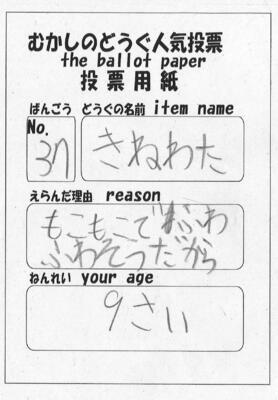 むかしのどうぐ人気投票
the ballot paper
投票用紙
ばんごう どうぐの名前 item name
No.
37 きねわた
えらんだ理由 reason
もこもこでふわ
ふわそうだから
ねんれい your age
9さい